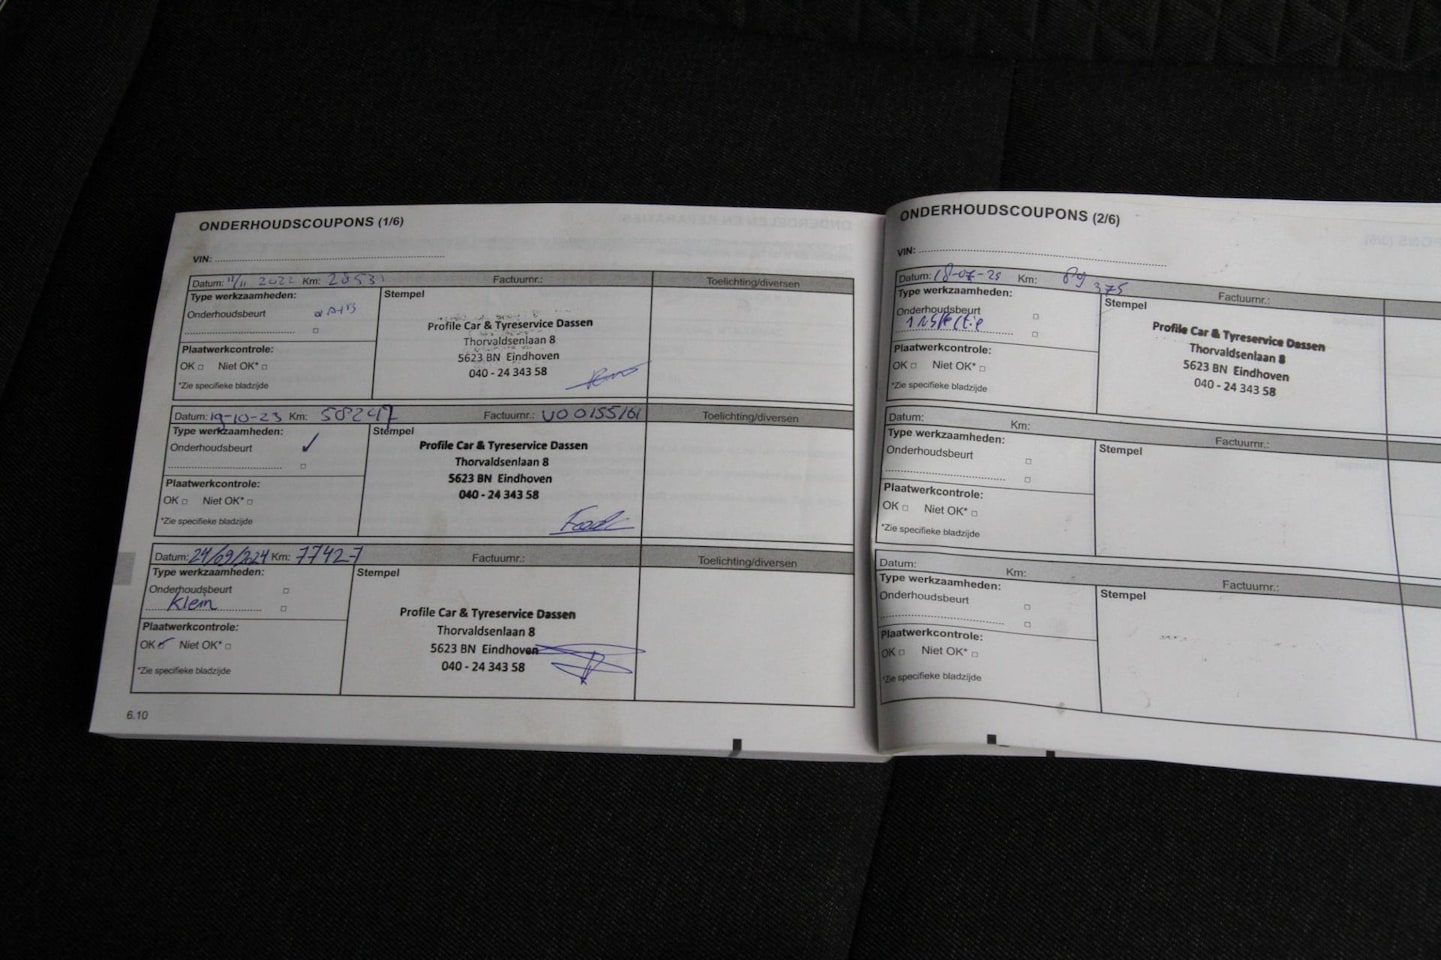 ONDERHOUDSCOUPONS (1/6)
VIN:
Datum: 11/11 2022 Km: Factuurnr.: Toelichting/diversen
Type werkzaamheden: Stempel
Onderhoudsbeurt
Profile Car & Tyreservice Dassen
Thorvaldsenlaan 8
5623 BN Eindhoven
040 - 24 343 58
Plaatwerkcontrole:
OK □ Niet OK* □
*Zie specifieke bladzijde
Datum: 19-10-23 Km: 58247 Factuurnr.: Toelichting/diversen
Type werkzaamheden: Stempel
Onderhoudsbeurt ✓
Profile Car & Tyreservice Dassen
Thorvaldsenlaan 8
5623 BN Eindhoven
040 - 24 343 58
Plaatwerkcontrole:
OK □ Niet OK* □
*Zie specifieke bladzijde
Datum: Km: 77427 Factuurnr.: Toelichting/diversen
Type werkzaamheden: Stempel
Onderhoudsbeurt □
Klein □
Profile Car & Tyreservice Dassen
Thorvaldsenlaan 8
5623 BN Eindhoven
040 - 24 343 58
Plaatwerkcontrole:
OK ✓ Niet OK* □
*Zie specifieke bladzijde
6.10
ONDERHOUDSCOUPONS (2/6)
VIN:
Datum: 18-07-25 Km: 89375 Factuurnr.:
Type werkzaamheden: Stempel
Onderhoudsbeurt □
inspectie □
Profile Car & Tyreservice Dassen
Thorvaldsenlaan 8
5623 BN Eindhoven
040 - 24 343 58
Plaatwerkcontrole:
OK □ Niet OK* □
*Zie specifieke bladzijde
Datum: Km: Factuurnr.:
Type werkzaamheden: Stempel
Onderhoudsbeurt □
Plaatwerkcontrole:
OK □ Niet OK* □
*Zie specifieke bladzijde
Datum: Km: Factuurnr.:
Type werkzaamheden: Stempel
Onderhoudsbeurt □
Plaatwerkcontrole:
OK □ Niet OK* □
*Zie specifieke bladzijde